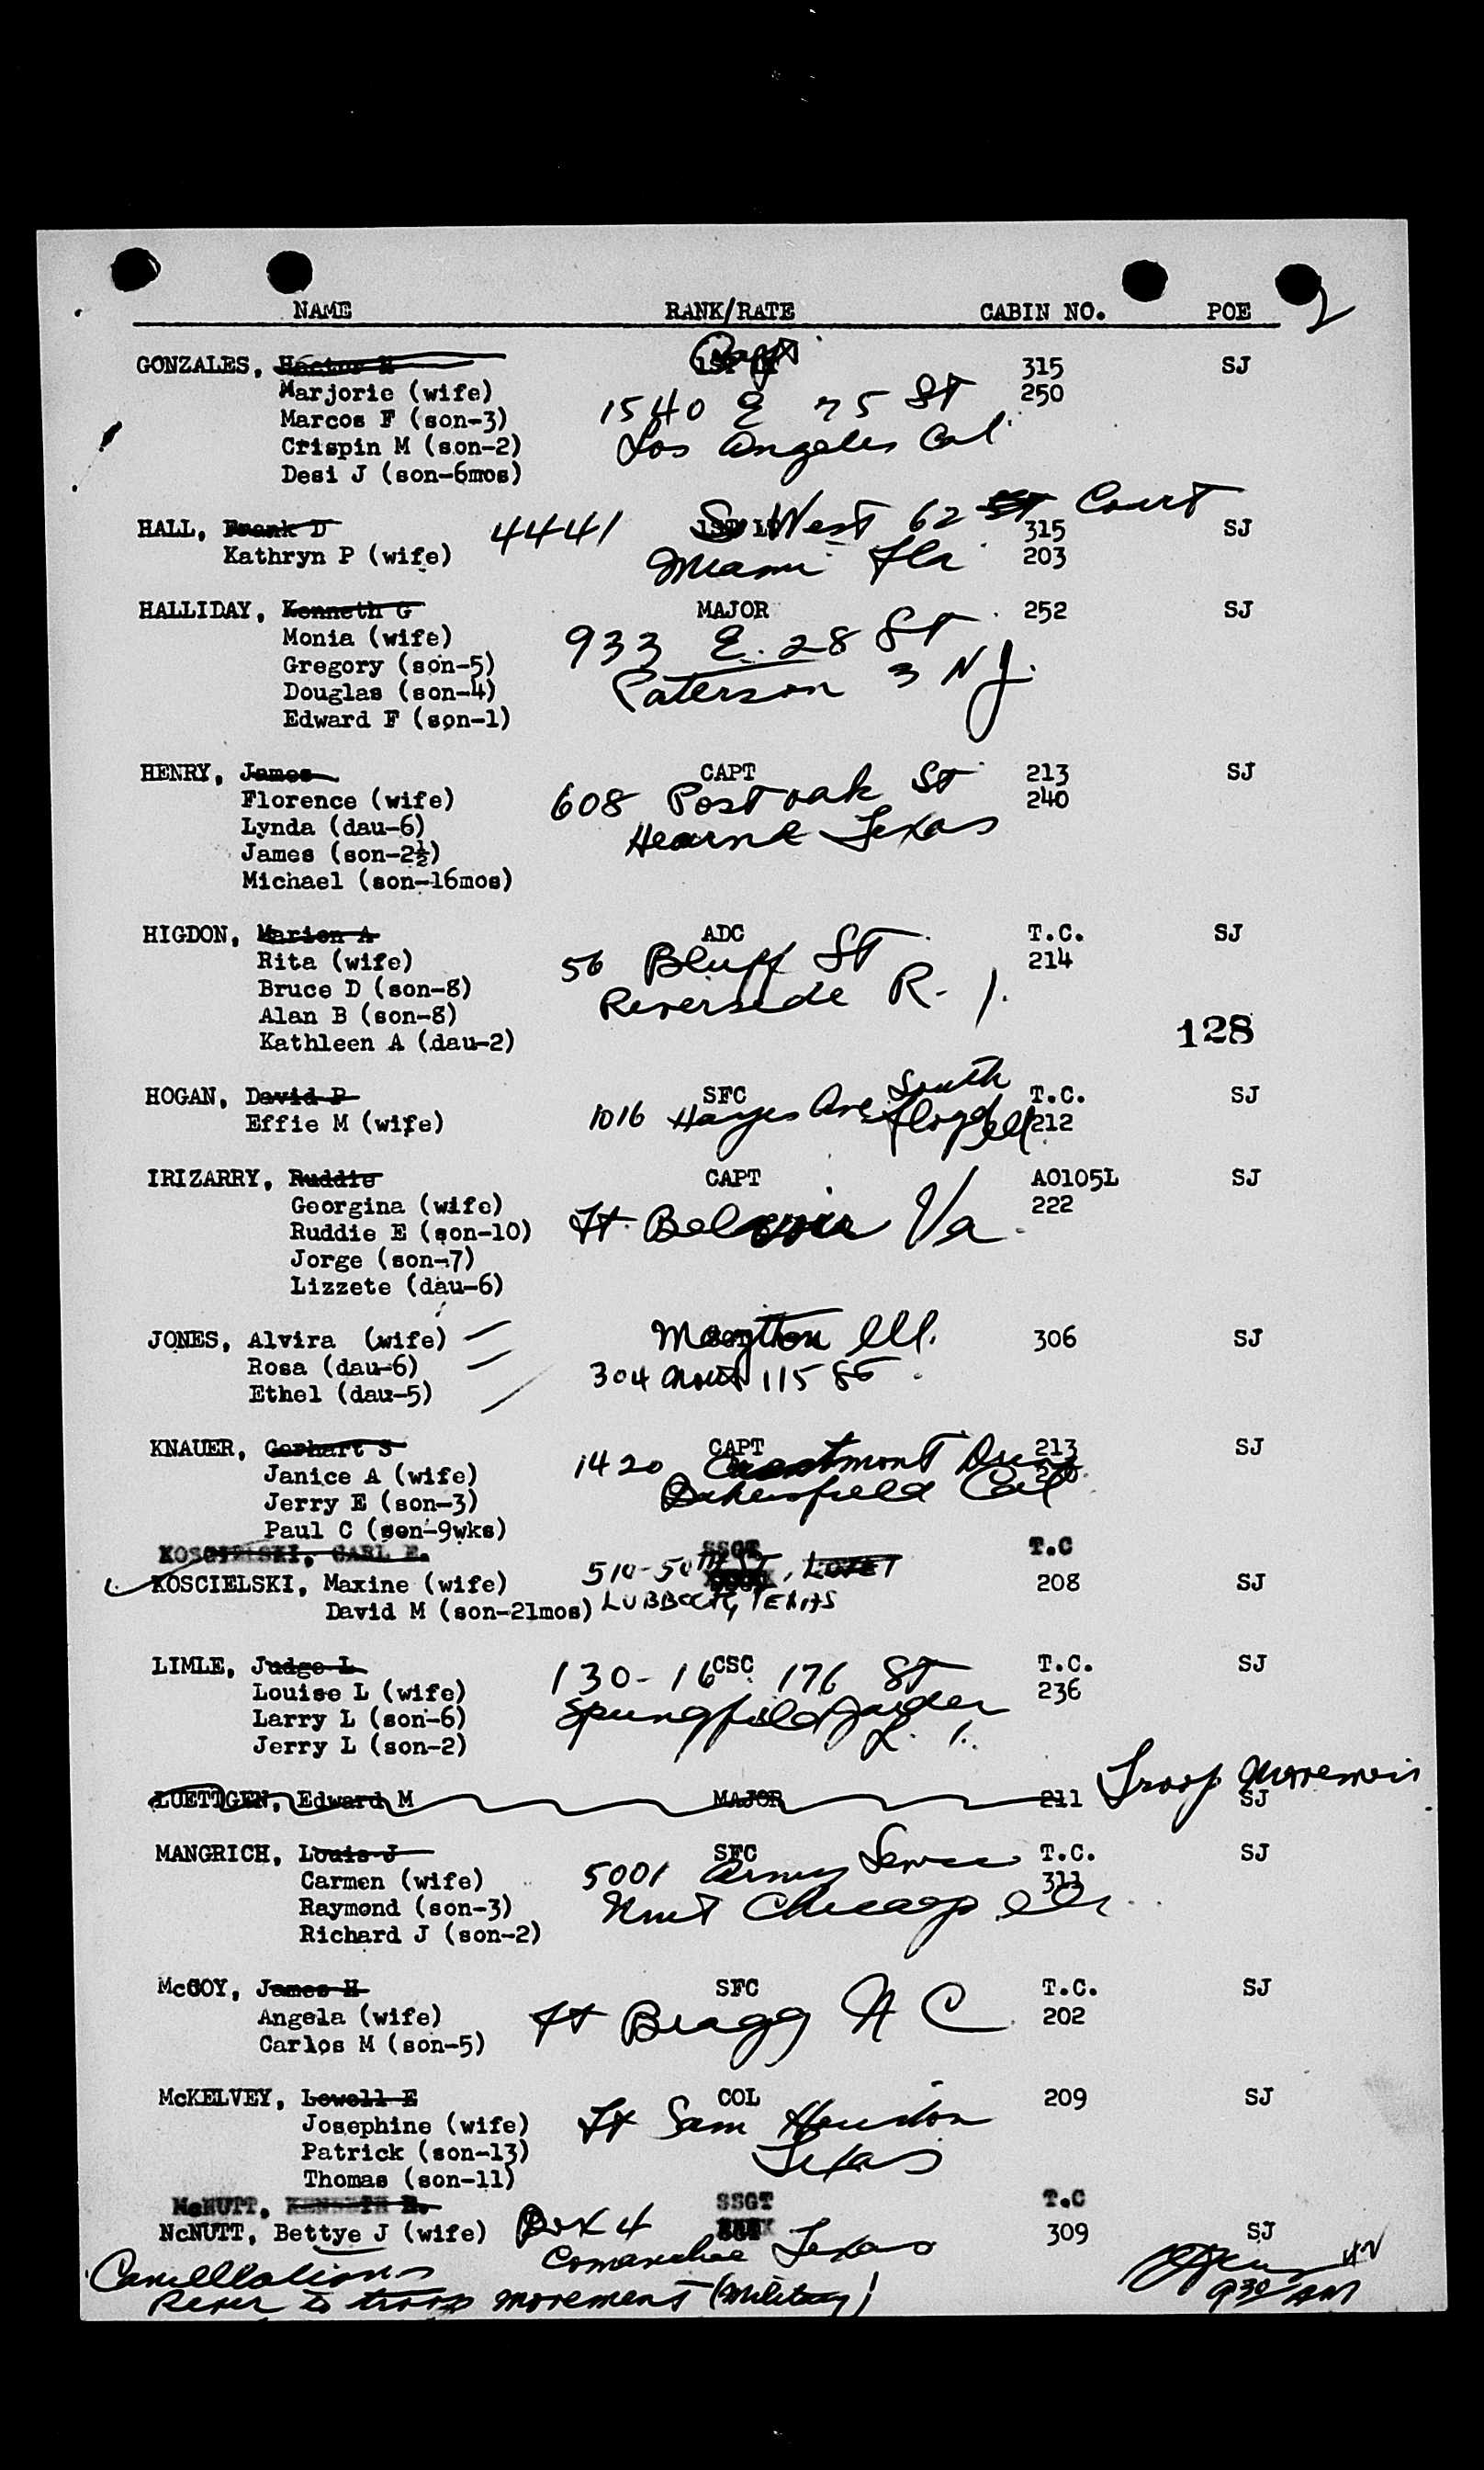 NAME RANK/RATE CABIN NO. POE 2
GONZALES, Hector 1ST LT 315 SJ
Marjorie (wife) 250
Marcos F (son-3) 1540 E 75 St
Crispin M (son-2) Los Angeles Cal.
Desi J (son-6mos)
HALL, Frank D 4441 1ST LT S. West 62 St Court 315 SJ
Kathryn P (wife) Miami Fla 203
HALLIDAY, Kenneth G MAJOR 252 SJ
Monia (wife) 933 E. 28 St
Gregory (son-5)
Douglas (son-4) Paterson 3 N J.
Edward F (son-1)
HENRY, James CAPT 213 SJ
Florence (wife) 608 Post oak St 240
Lynda (dau-6) Hearne Texas
James (son-2½)
Michael (son-16mos)
HIGDON, Marion A ADC T.C. SJ
Rita (wife) 56 Bluff St 214
Bruce D (son-8) Riverside R. I.
Alan B (son-8)
Kathleen A (dau-2) 128
HOGAN, David P SFC South T.C. SJ
Effie M (wife) 1016 Hayes Ave 212
IRIZARRY, Ruddie CAPT AO105L SJ
Georgina (wife) 222
Ruddie E (son-10) Ft. Belvoir Va.
Jorge (son-7)
Lizzete (dau-6)
JONES, Alvira (wife) Ill. 306 SJ
Rosa (dau-6) 304 115
Ethel (dau-5)
KNAUER, Gerhart S CAPT 213 SJ
Janice A (wife) 1420 Crestmont Drive
Jerry E (son-3) Bakersfield Cal
Paul C (son-9wks)
KOSCIELSKI, CARL E. SSGT T.C
KOSCIELSKI, Maxine (wife) 510-50TH ST, 208 SJ
David M (son-21mos) LUBBOCK, TEXAS
LIMLE, Judge L CSC T.C. SJ
Louise L (wife) 130-16 176 St 236
Larry L (son-6) Springfield Garden
Jerry L (son-2) L. I.
LUETTGEN, Edward M MAJOR 211 Troop Movement SJ
MANGRICH, Louis J SFC T.C. SJ
Carmen (wife) 5001 Army Service 311
Raymond (son-3) Unit Chicago Ill.
Richard J (son-2)
McCOY, James H SFC T.C. SJ
Angela (wife) Ft Bragg N C 202
Carlos M (son-5)
McKELVEY, Lowell E COL 209 SJ
Josephine (wife) Ft Sam Houston
Patrick (son-13) Texas
Thomas (son-11)
McNUTT, KENNETH R. SSGT T.C
NcNUTT, Bettye J (wife) Box 4 309 SJ
Comanche Texas
Cancellations
Refer to troop movement (Military) 930 AM